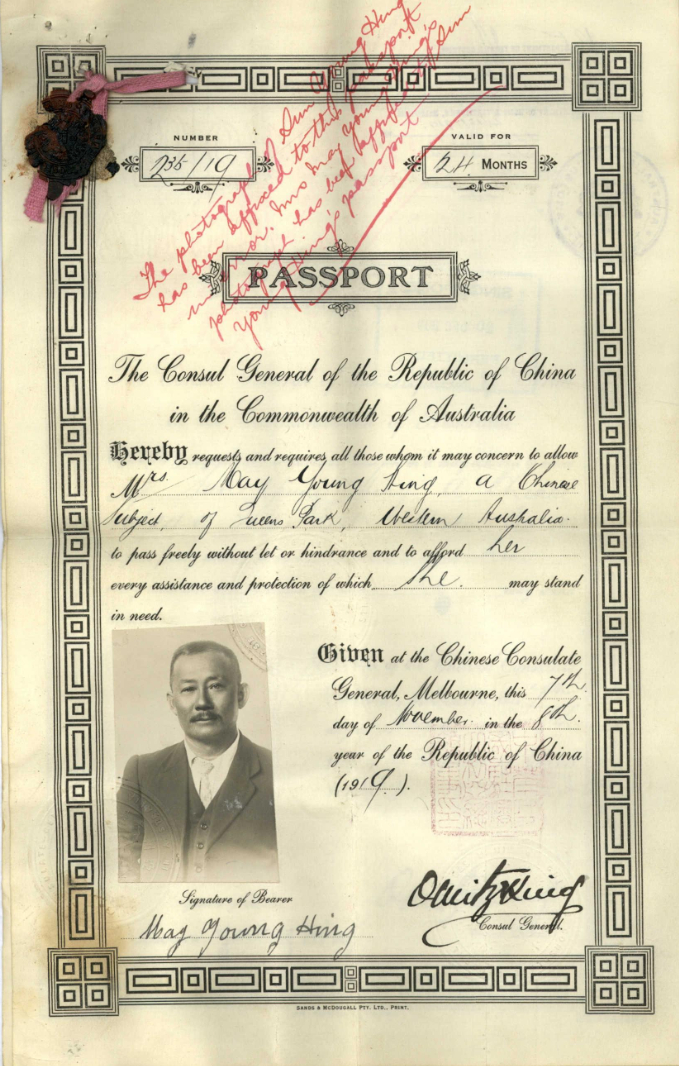 The photograph of Sun Young Hing
has been affixed to this passport
in error. Mrs May Young Hing's
photograph has been affixed to Sun
Young Hing's passport
NUMBER
235/19
VALID FOR
24 MONTHS
PASSPORT
The Consul General of the Republic of China
in the Commonwealth of Australia
Hereby requests and requires all those whom it may concern to allow
Mrs. May Young Hing, a Chinese
Subject, of Queens Park, Western Australia.
to pass freely without let or hindrance and to afford her
every assistance and protection of which she. may stand
in need.
Given at the Chinese Consulate
General, Melbourne, this 7th
day of November. in the 8th.
year of the Republic of China
(1919.).
Signature of Bearer
May Young Hing
Consul General.
SANDS & McDOUGALL PTY. LTD., PRINT.